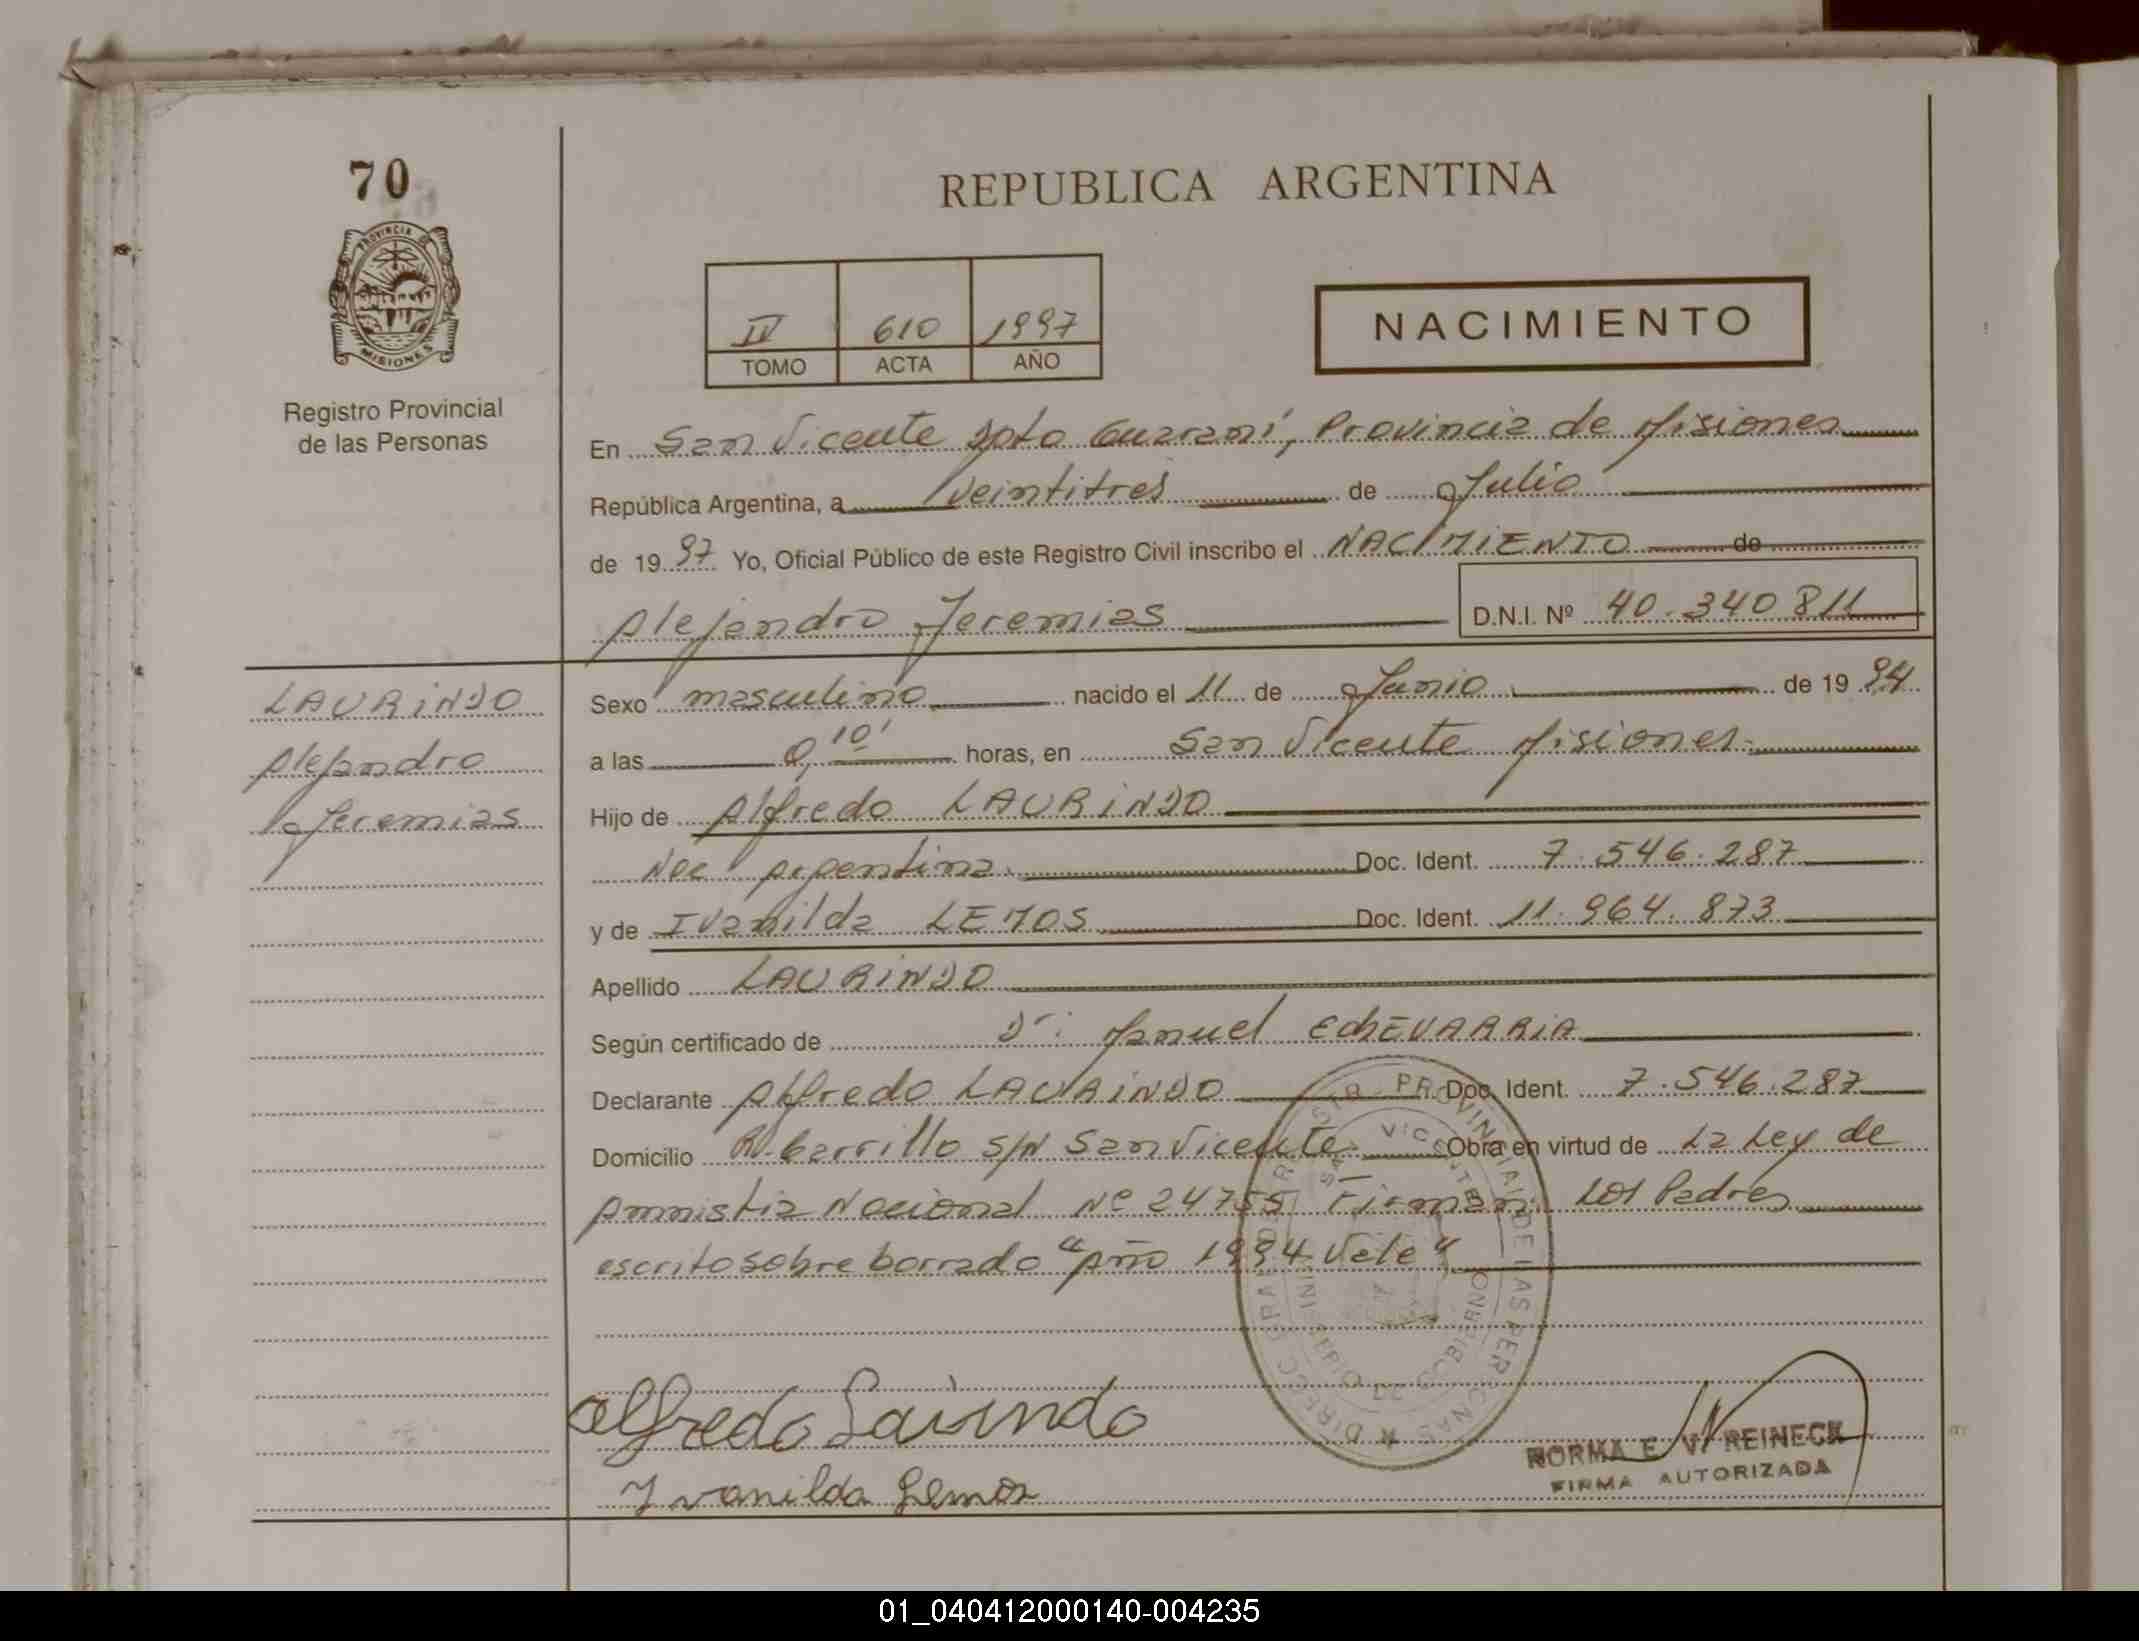 70
REPUBLICA ARGENTINA
PROVINCIA DE
MISIONES
Registro Provincial
de las Personas
IV 610 1997
TOMO ACTA AÑO
NACIMIENTO
En San Vicente Dpto Guaraní, Provincia de Misiones
República Argentina, a Veintitres de Julio
de 1997 Yo, Oficial Público de este Registro Civil inscribo el NACIMIENTO de
Alejandro Jeremias D.N.I. Nº 40.340 811
LAURINDO
Alejandro
Jeremias
Sexo masculino nacido el 11 de Junio de 1994
a las 0,10' horas, en San Vicente Misiones
Hijo de Alfredo LAURINDO
Nac Argentina Doc. Ident. 7.546.287
y de Ivanilda LEMOS Doc. Ident. 11.964.873
Apellido LAURINDO
Según certificado de Dr: Manuel EchEVARRIA
Declarante Alfredo LAURINDO Doc. Ident. 7.546.287
Domicilio Bº Carrillo S/N San Vicente Obra en virtud de La Ley de
Amnistia Nacional Nº 24755 Firman: Los Padres
escrito sobre borrado "Año 1994 Vale"
Alfredo Laurindo
Ivanilda Lemos
NORMA E V. REINECK
FIRMA AUTORIZADA
01_040412000140-004235